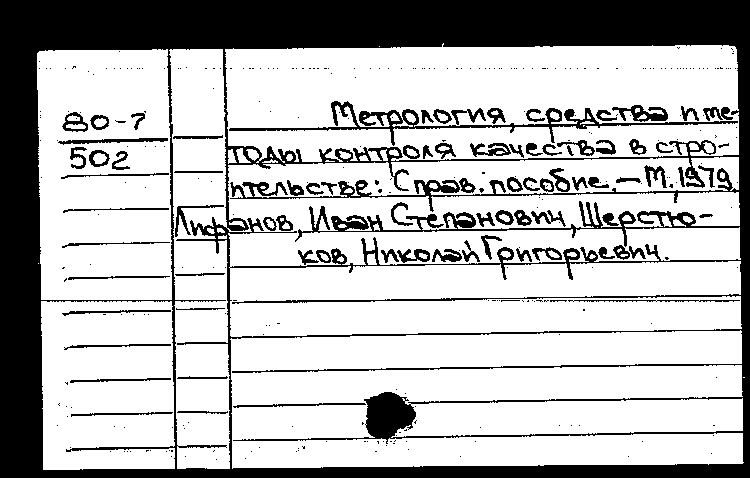 80-7
502
Метрология, средства и ме-
тоды контроля качества в стро-
ительстве: Справ. пособие. — М., 1979.
Лифанов, Иван Степанович, Шерстю-
ков, Николай Григорьевич.